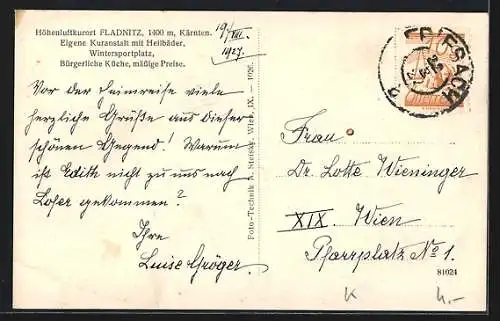 Höhenluftkurort FLADNITZ, 1400 m, Kärnten.
Eigene Kuranstalt mit Heilbäder,
Wintersportplatz,
Bürgerliche Küche, mäßige Preise.
19/VIII.
1927.
Vor der Heimreise viele
herzliche Grüße aus dieser
schönen Gegend! Warum
ist Edith nicht zu uns nach
Lofer gekommen?
Ihre
Luise Gröger.
Foto-Technik A. Stefsky, Wien, IX. — 1926.
FRIESACH
Frau
Dr. Lotte Wieninger
XIX Wien
Pfarrplatz No 1.
81024
K
4.-